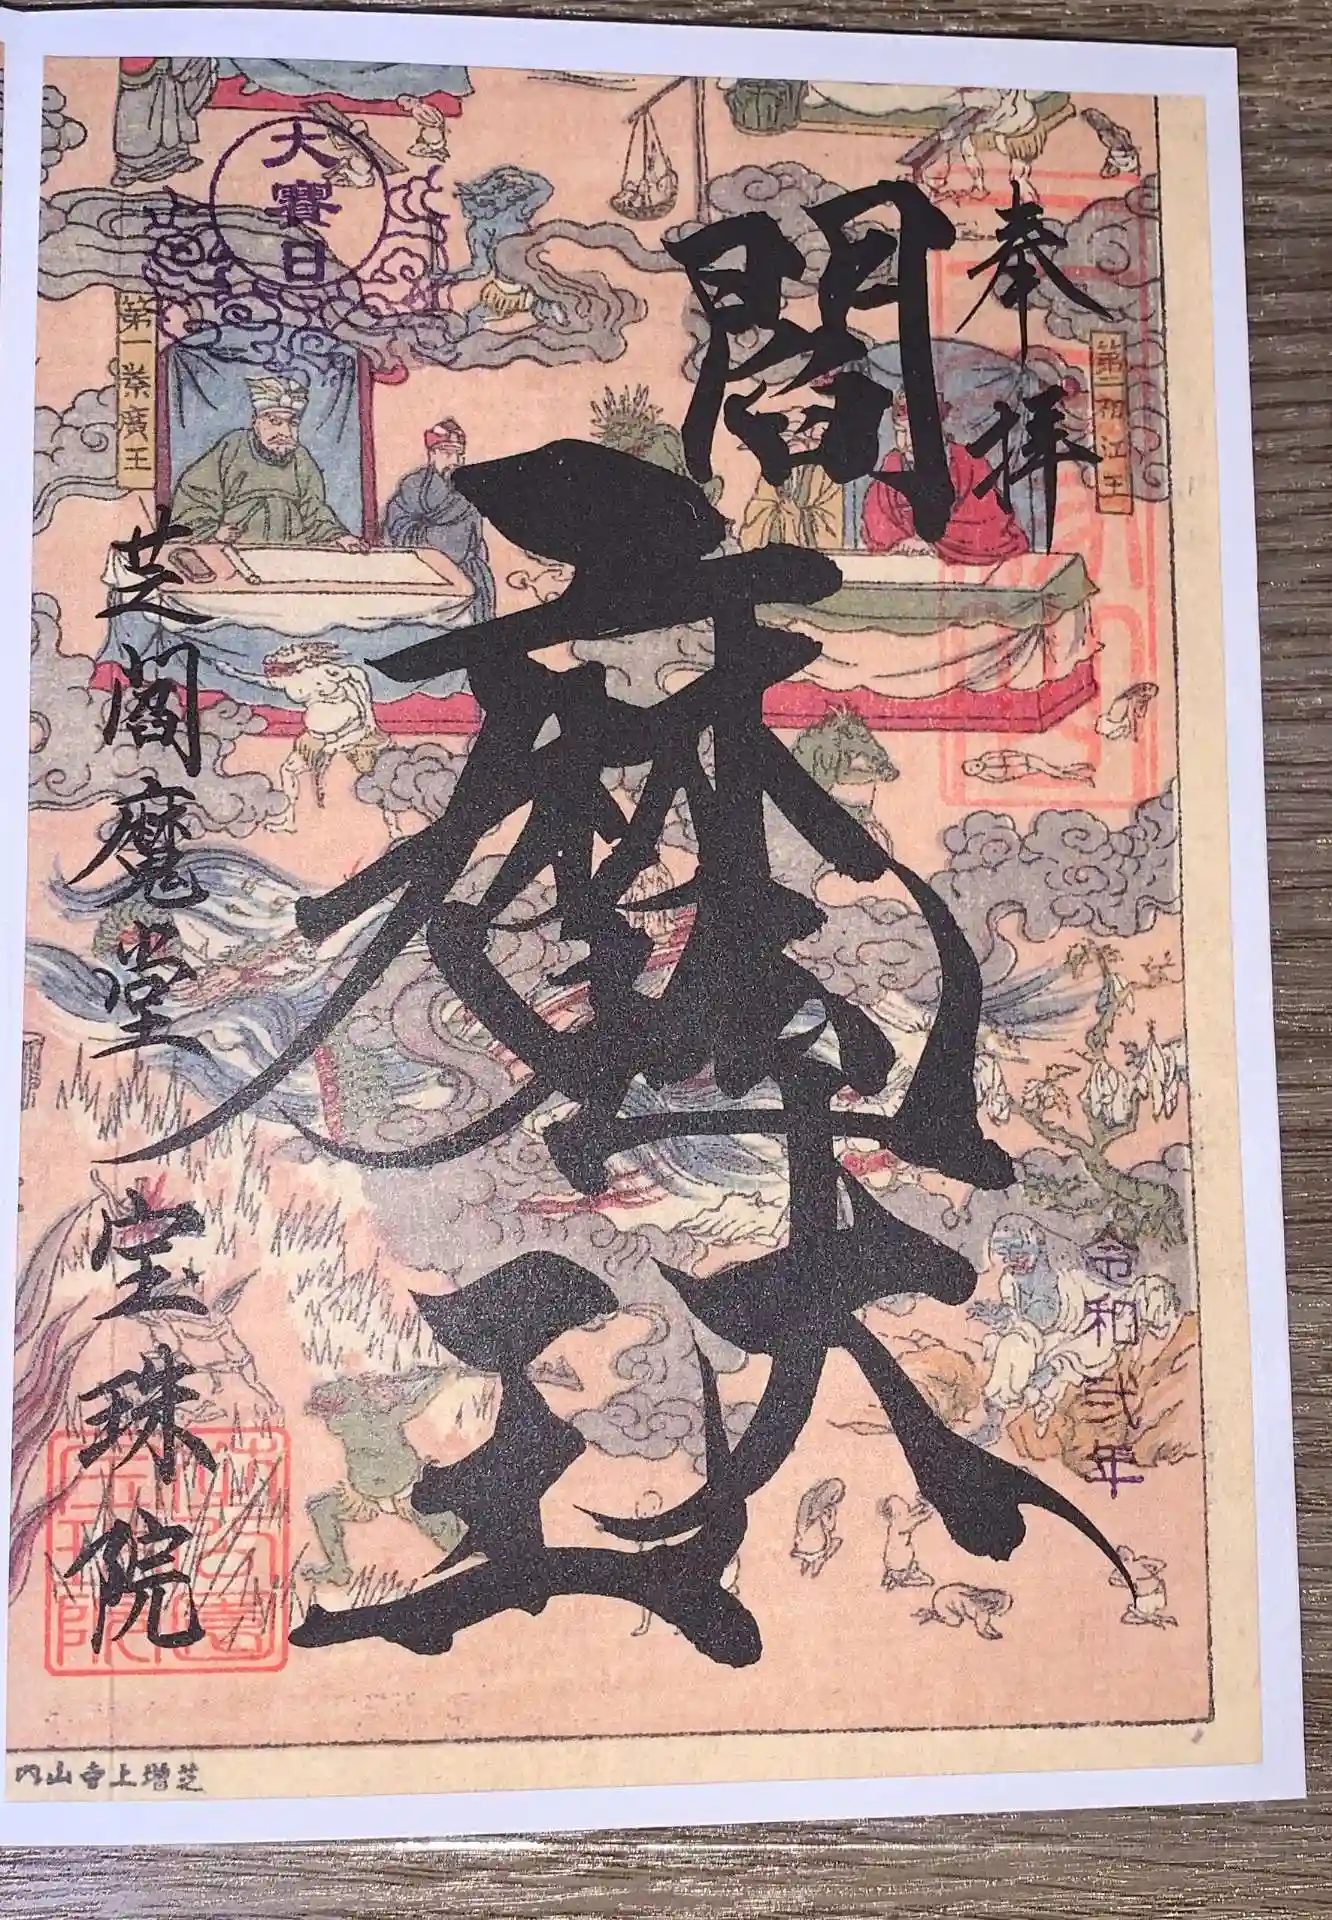 奉拝
第二初江王
令和弐年
閻魔王
大賽日
第一秦廣王
芝閻魔堂 宝珠院
芝増上寺山内